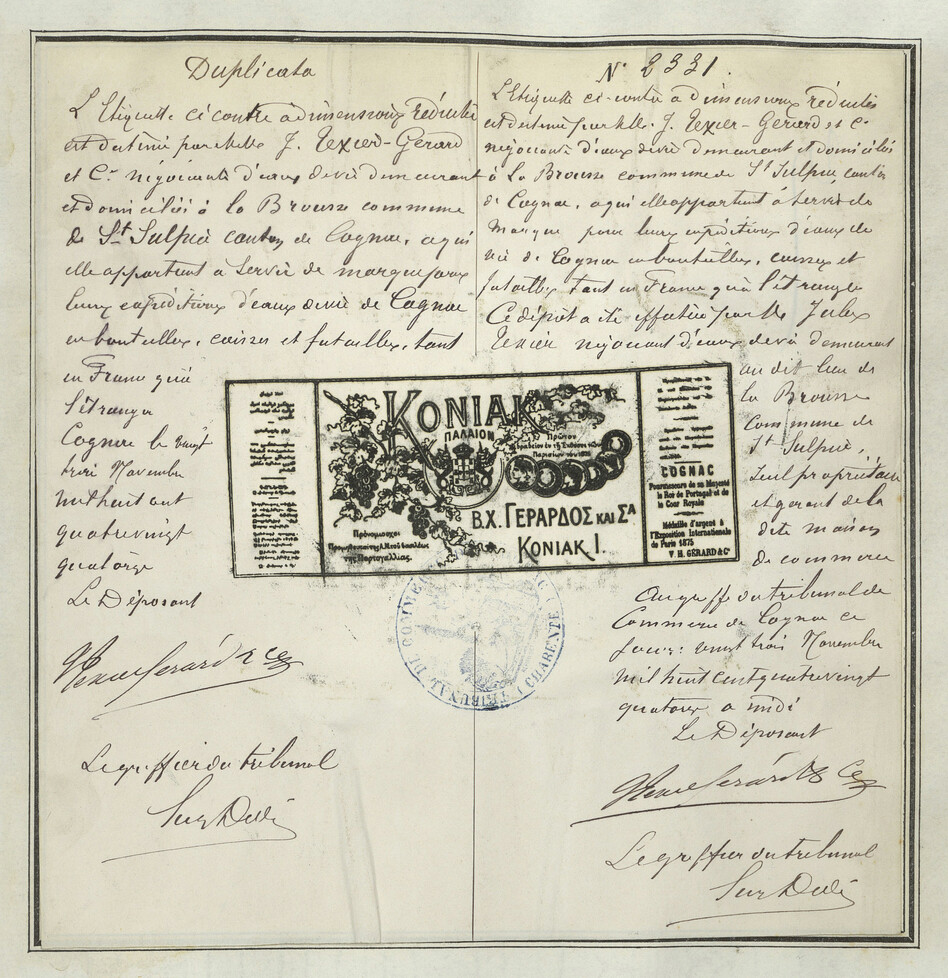 Duplicata
L'Etiquette ci contre à dimensions réduites
est destinée par MM. J. Texier-Gérard
et Cie négociants d'eaux de vie demeurant
et domiciliés à La Brousse commune
de St Sulpice canton de Cognac, a qui
elle appartient à servir de marque pour
leurs expéditions d'eaux de vie de Cognac
en bouteilles, caisses et futailles, tant
en France qu'à
l'étranger
Cognac le vingt
trois Novembre
mil huit cent
quatrevingt
quatorze
Le Déposant
Gérard & Cie
Le greffier du tribunal
N° 2331.
L'Etiquette ci-contre à dimensions réduites
est destinée par MM. J. Texier-Gérard et Cie
négociants d'eaux de vie demeurant et domiciliés
à La Brousse commune de St Sulpice, canton
de Cognac, a qui elle appartient à servir de
marque pour leurs expéditions d'eaux de
vie de Cognac en bouteilles, caisses et
futailles tant en France qu'à l'étranger
Ce dépôt a été effectué par M. Jules
Texier négociant d'eaux de vie demeurant
au dit lieu de
La Brousse
commune de
St Sulpice,
seul propriétaire
et gérant de la
dite maison
de commerce
Au greffe du tribunal de
Commerce de Cognac ce
jour: vingt trois Novembre
mil huit cent quatrevingt
quatorze a midi
Le Déposant
Gérard & Cie
Le greffier du tribunal
ΚΟΝΙΑΚ
ΠΑΛΑΙΟΝ
Πρώτον
Παρισίων του 1878
Β.Χ. ΓΕΡΑΡΔΟΣ ΚΑΙ ΣΑ
ΚΟΝΙΑΚ Ι.
Προνομιούχοι
της Πορτογαλλίας.
COGNAC
Fournisseurs de sa Majesté
le Roi de Portugal et de
la Cour Royale
Médaille d'argent à
l'Exposition Internationale
de Paris 1875
V. H. GÉRARD & Co
TRIBUNAL DE COMMERCE
CHARENTE